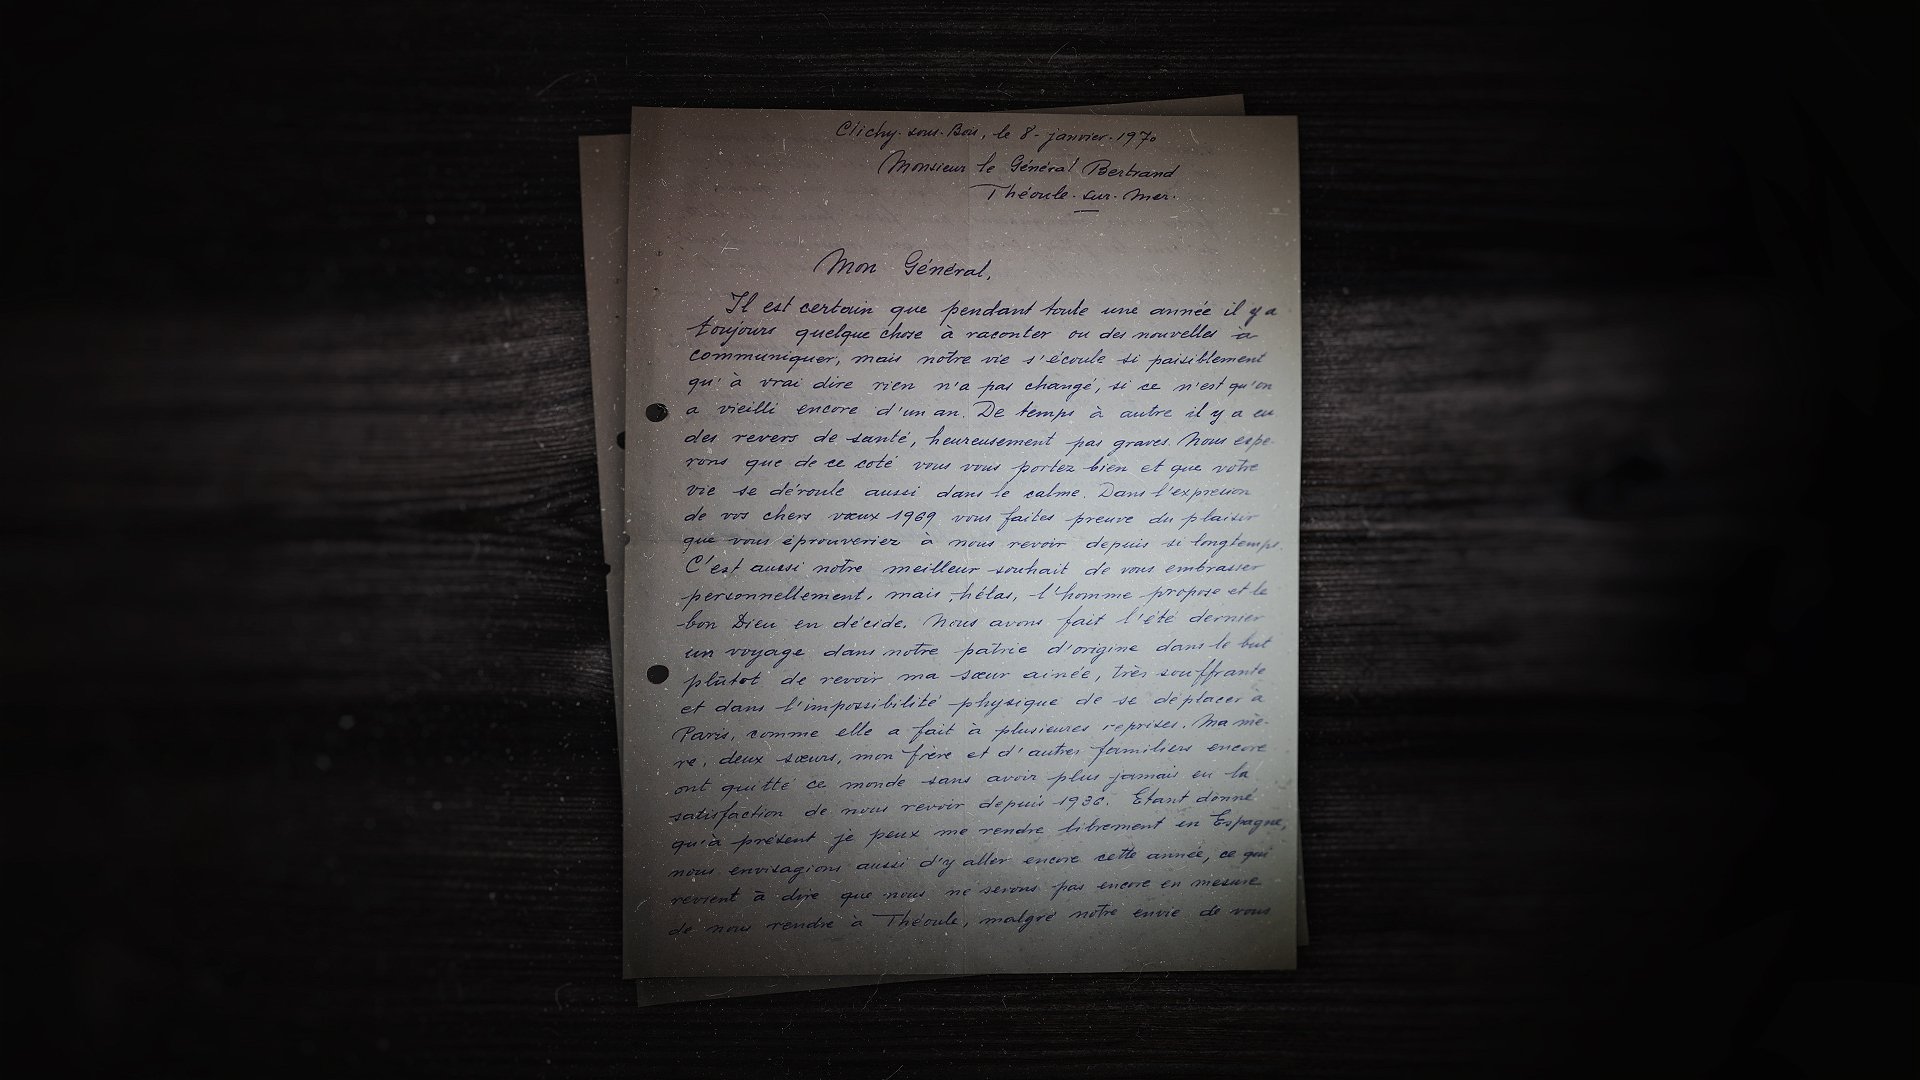 Clichy-sous-Bois, le 8-janvier-1970
Monsieur le Général Bertrand
Théoule-sur-Mer.
Mon Général,
Il est certain que pendant toute une année il y a
toujours quelque chose à raconter ou des nouvelles à
communiquer, mais notre vie s'écoule si paisiblement
qu'à vrai dire rien n'a pas changé, si ce n'est qu'on
a vieilli encore d'un an. De temps à autre il y a eu
des revers de santé, heureusement pas graves. Nous espe-
rons que de ce coté vous vous portez bien et que votre
vie se déroule aussi dans le calme. Dans l'expresion
de vos chers vœux 1969 vous faites preuve du plaisir
que vous éprouveriez à nous revoir depuis si longtemps.
C'est aussi notre meilleur souhait de vous embrasser
personnellement, mais, hélas, l'homme propose et le
bon Dieu en décide. Nous avons fait l'été dernier
un voyage dans notre patrie d'origine dans le but
plûtot de revoir ma sœur ainée, très souffrante
et dans l'impossibilité physique de se déplacer à
Paris, comme elle a fait à plusieures reprises. Ma mè-
re, deux sœurs, mon frère et d'autres familiers encore
ont quitté ce monde sans avoir plus jamais eu la
satisfaction de nous revoir depuis 1936. Etant donné
qu'à présent je peux me rendre librement en Espagne,
nous envisagions aussi d'y aller encore cette année, ce qui
revient à dire que nous ne serons pas encore en mesure
de nous rendre à Théoule, malgré notre envie de vous